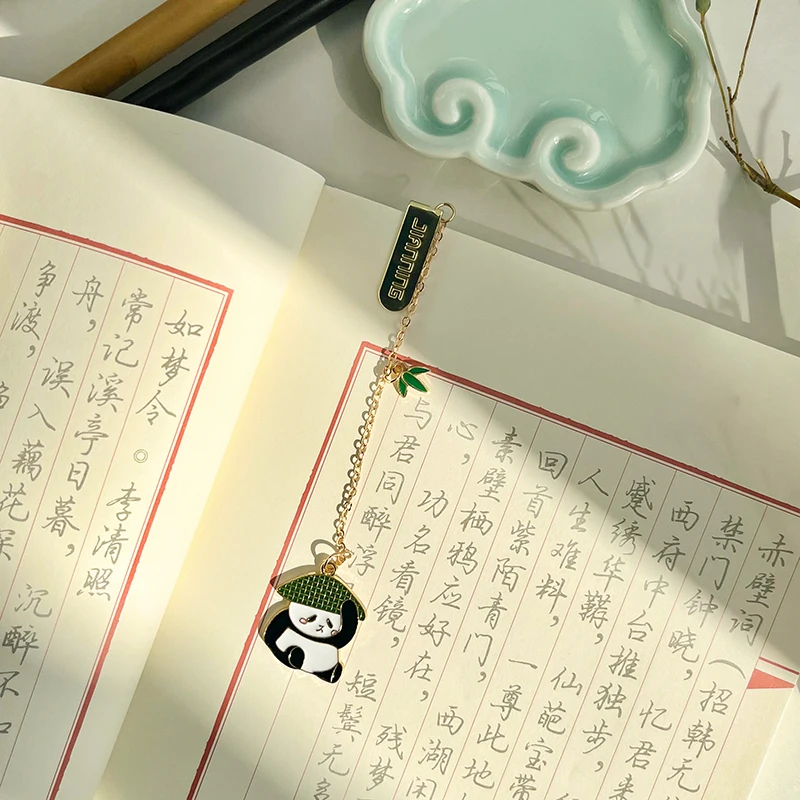 JIANNING
如梦令◎李清照
常记溪亭日暮，沉醉不
舟，误入藕花深
争渡，
赤壁词（招韩无
禁门钟晓，忆君来
西府中台推独步，
蹙绣华鞯，仙葩宝带
人生难料，一尊此地
回首紫陌青门，西湖闲
素壁栖鸦应好在，残梦
心，功名看镜，短鬓无多
与君同醉浮